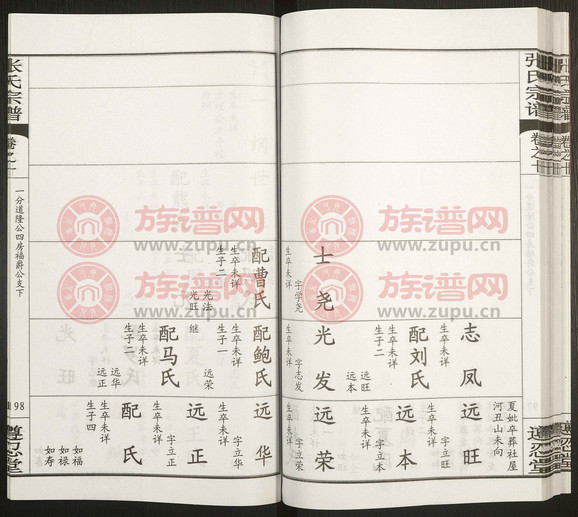 张氏宗谱
卷之十
夏妣卒葬社屋
河丑山未向
士尧
字学尧
生卒未详
配曹氏
生卒未详
生子二
光法
光旺
志凤
配刘氏
生卒未详
生子二
远旺
远本
光发
字志发
生卒未详
配鲍氏
生卒未详
生子一
远荣
继
配马氏
生卒未详
生子二
远华
远正
远旺
字立旺
生卒未详
远本
字立本
生卒未详
远荣
字立荣
生卒未详
远华
字立华
生卒未详
远正
字立正
生卒未详
配氏
生卒未详
生子四
如福
如禄
如寿
张氏宗谱
卷之十
一分道隆公四房福爵公支下
98
遵忍堂
族谱网
www.zupu.cn
族谱网
www.zupu.cn